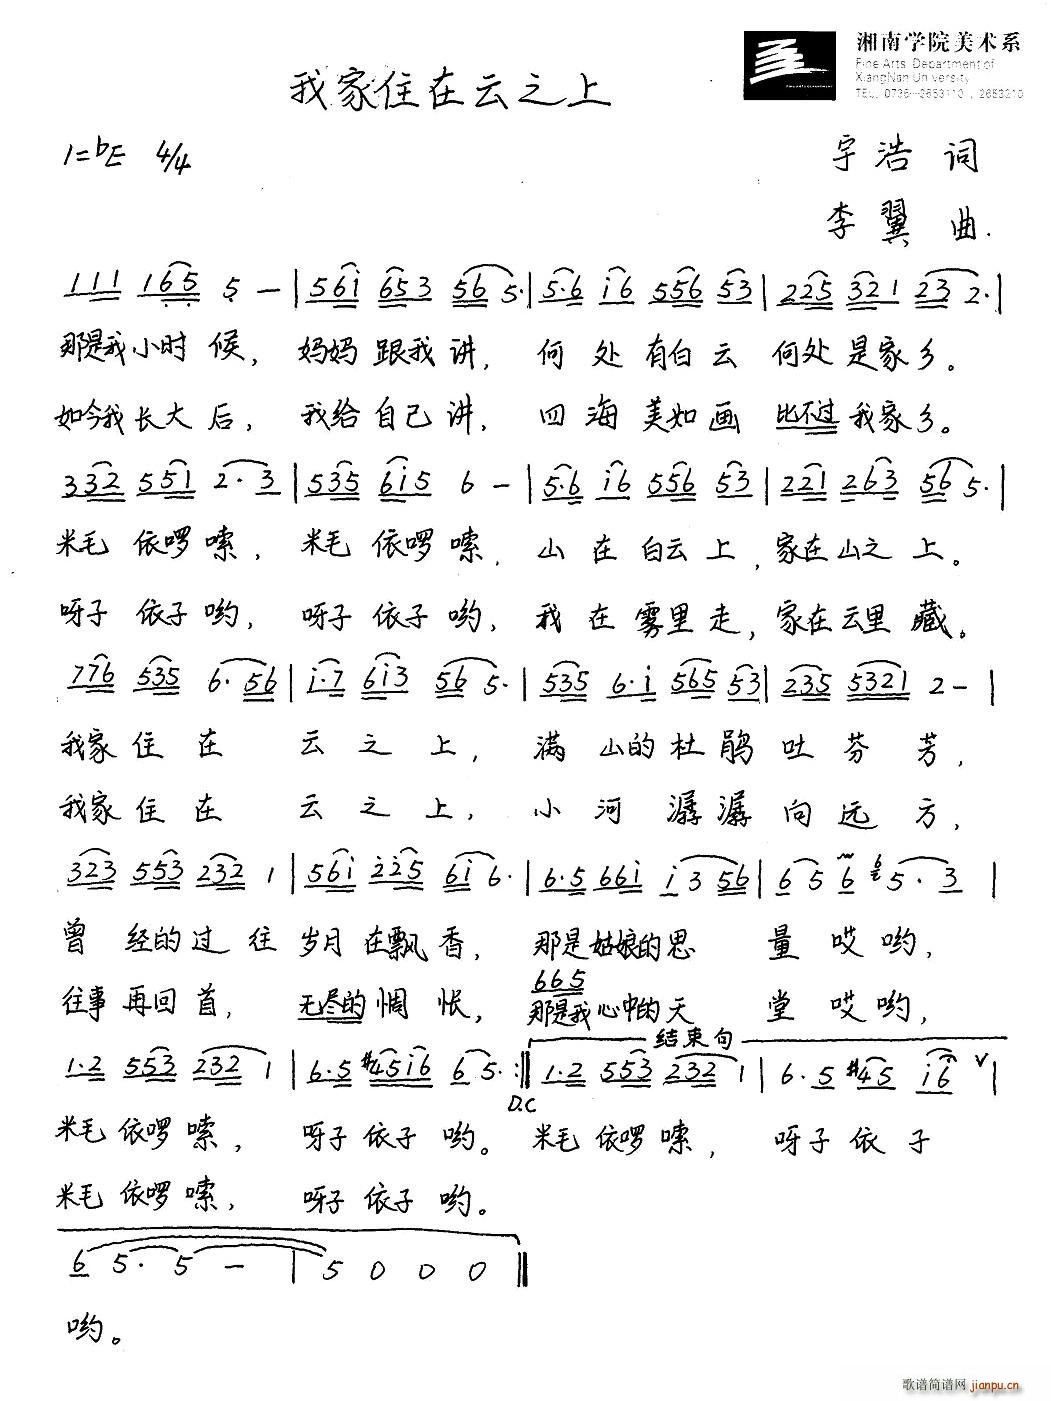 湘南学院美术系
Fine Arts Department of
XiangNan University
TEL: 0735-2653110, 2653210
我家住在云之上
1=bE 4/4
宇浩 词
李翼 曲.
111 165 5 — | 56i 653 56 5· | 5·6 i6 556 53 | 225 321 23 2· |
那是我小时候, 妈妈跟我讲, 何处有白云 何处是家乡。
如今我长大后, 我给自己讲, 四海美如画 比不过我家乡。
332 551 2·3 | 535 6i5 6 — | 5·6 i6 556 53 | 221 263 56 5· |
米毛依啰嗦, 米毛依啰嗦, 山在白云上, 家在山之上。
呀子依子哟, 呀子依子哟, 我在雾里走, 家在云里藏。
776 535 6·56 | i·7 6i3 56 5· | 535 6·i 565 53 | 235 5321 2 — |
我家住在 云之上, 满山的杜鹃吐芬芳,
我家住在 云之上, 小河潺潺向远方,
323 553 232 1 | 56i 225 6i 6· | 6·5 66i i3 56 | 6 5 6 b5·3 |
曾经的过往 岁月在飘香, 那是姑娘的思 量哎哟,
665
往事再回首, 无尽的惆怅, 那是我心中的天 堂哎哟,
结束句
1·2 553 232 1 | 6·5 #45i6 6 5· :‖ 1·2 553 232 1 | 6·5 #45 i6 V |
D.C
米毛依啰嗦, 呀子依子哟。 米毛依啰嗦, 呀子依子
米毛依啰嗦, 呀子依子哟。
6 5· 5 — | 5 0 0 0 ‖
哟。
歌谱简谱网 jianpu.cn